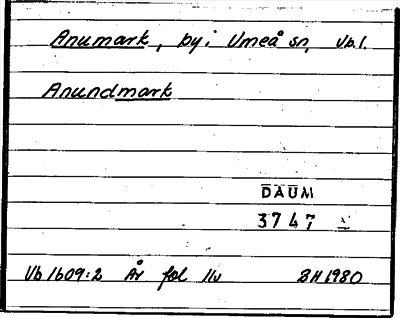 Anumark, by i Umeå sn, Vb.l.
Anundmark
DAUM
3747
Vb 1609:2 År fol 11v BH 1980